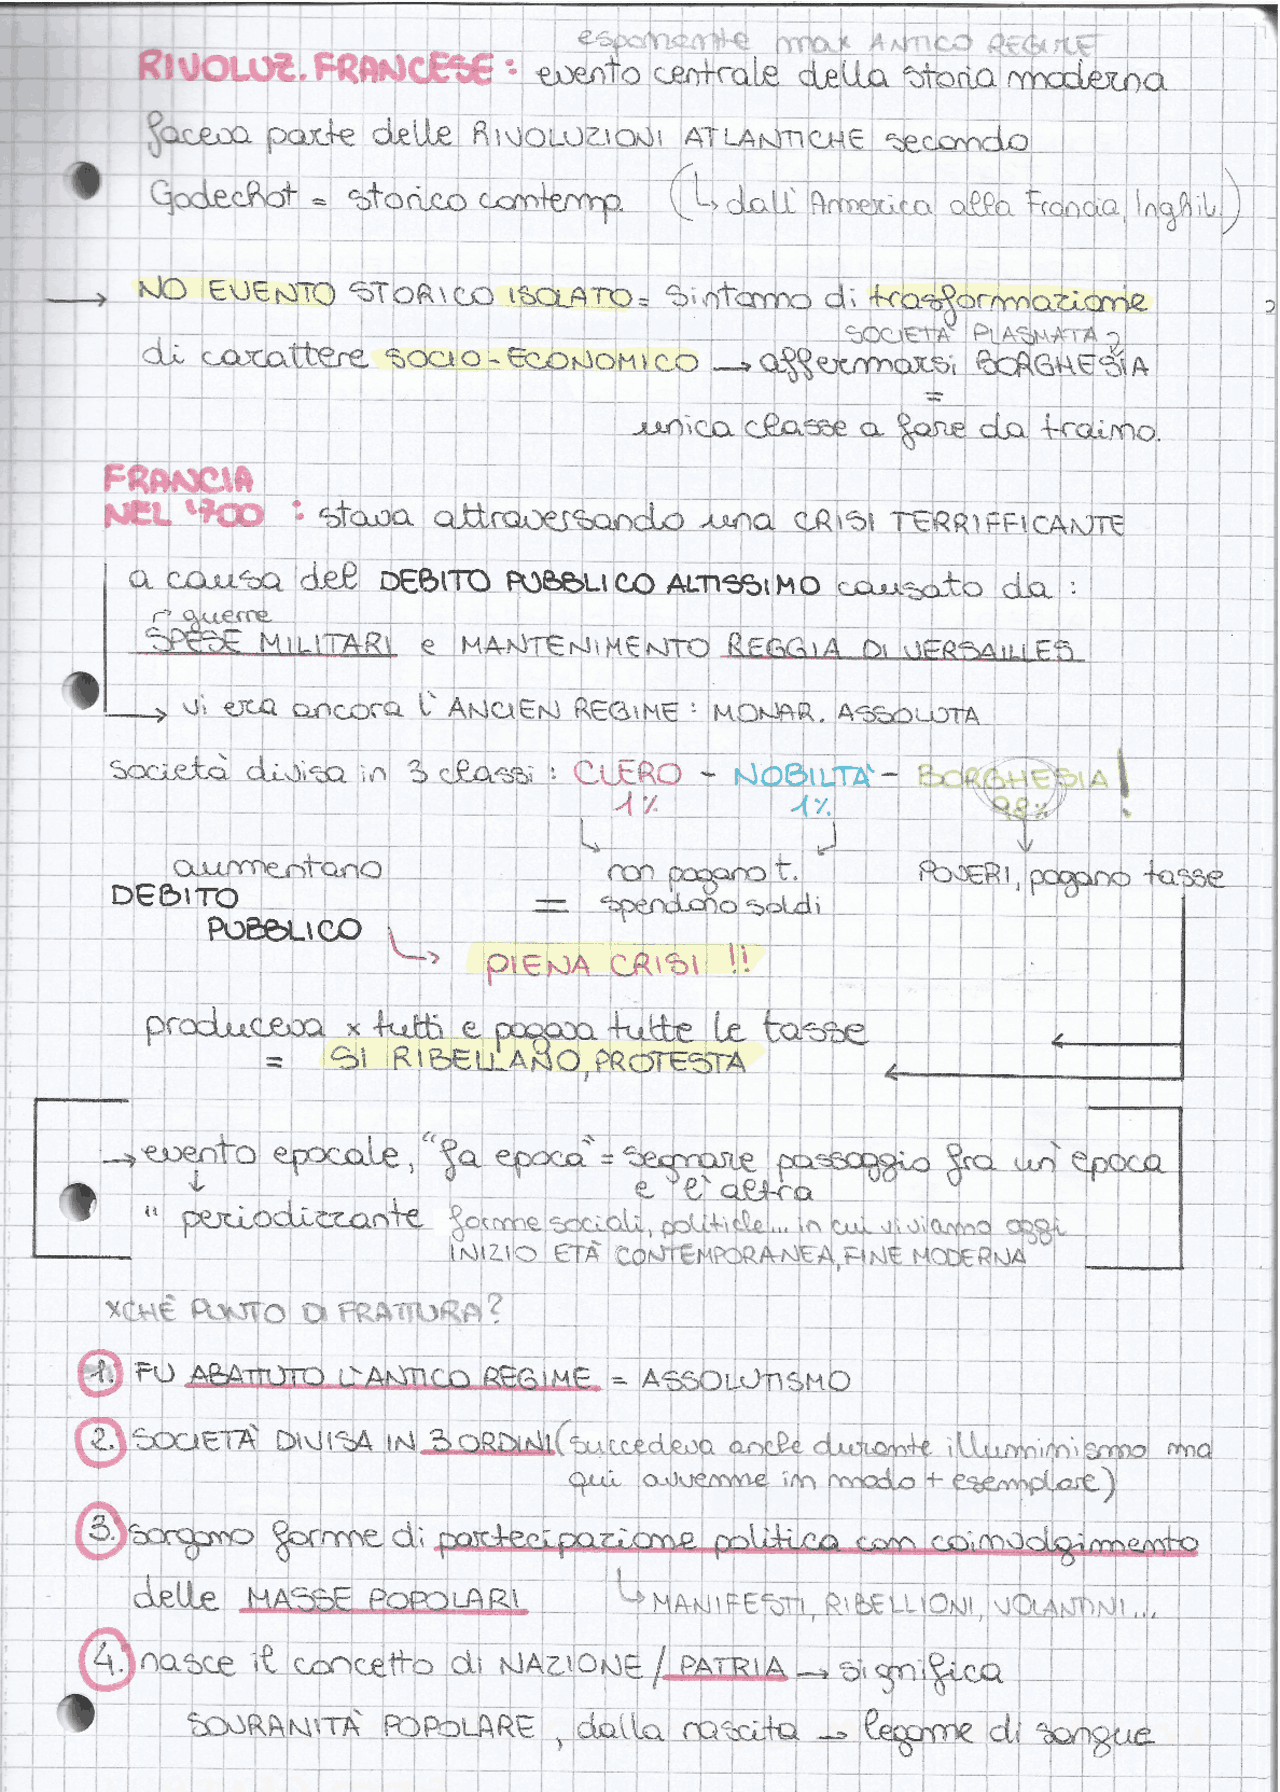 esponente max ANTICO REGIME
RIVOLUZ. FRANCESE : evento centrale della storia moderna
faceva parte delle RIVOLUZIONI ATLANTICHE secondo
Godechot = storico contemp. (↳ dall'America alla Francia, Inghil.)
→ NO EVENTO STORICO ISOLATO = Sintomo di trasformazione
SOCIETÀ PLASMATA
di carattere SOCIO-ECONOMICO → affermarsi BORGHESIA
=
unica classe a fare da traino.
FRANCIA
NEL '700 : stava attraversando una CRISI TERRIFFICANTE
a causa del DEBITO PUBBLICO ALTISSIMO causato da :
guerre
SPESE MILITARI e MANTENIMENTO REGGIA DI VERSAILLES
→ vi era ancora l'ANCIEN REGIME : MONAR. ASSOLUTA
società divisa in 3 classi : CLERO - NOBILTÀ - BORGHESIA !
1% 1% 98%
aumentano non pagano t. POVERI, pagano tasse
DEBITO = spendono soldi
PUBBLICO
↳ PIENA CRISI !!
produceva x tutti e pagava tutte le tasse ←
= SI RIBELLANO, PROTESTA ←
→ evento epocale, "fa epoca" = segnare passaggio fra un'epoca
↓ e l'altra
" periodizzante forme sociali, politiche... in cui viviamo oggi
INIZIO ETÀ CONTEMPORANEA, FINE MODERNA
XCHÈ PUNTO DI FRATTURA?
1. FU ABATTUTO L'ANTICO REGIME = ASSOLUTISMO
2. SOCIETÀ DIVISA IN 3 ORDINI (succedeva anche durante illuminismo ma
qui avvenne in modo + esemplare)
3. sorgono forme di partecipazione politica con coinvolgimento
delle MASSE POPOLARI ↳ MANIFESTI, RIBELLIONI, VOLANTINI...
4. nasce il concetto di NAZIONE / PATRIA → significa
SOVRANITÀ POPOLARE , dalla nascita → legame di sangue